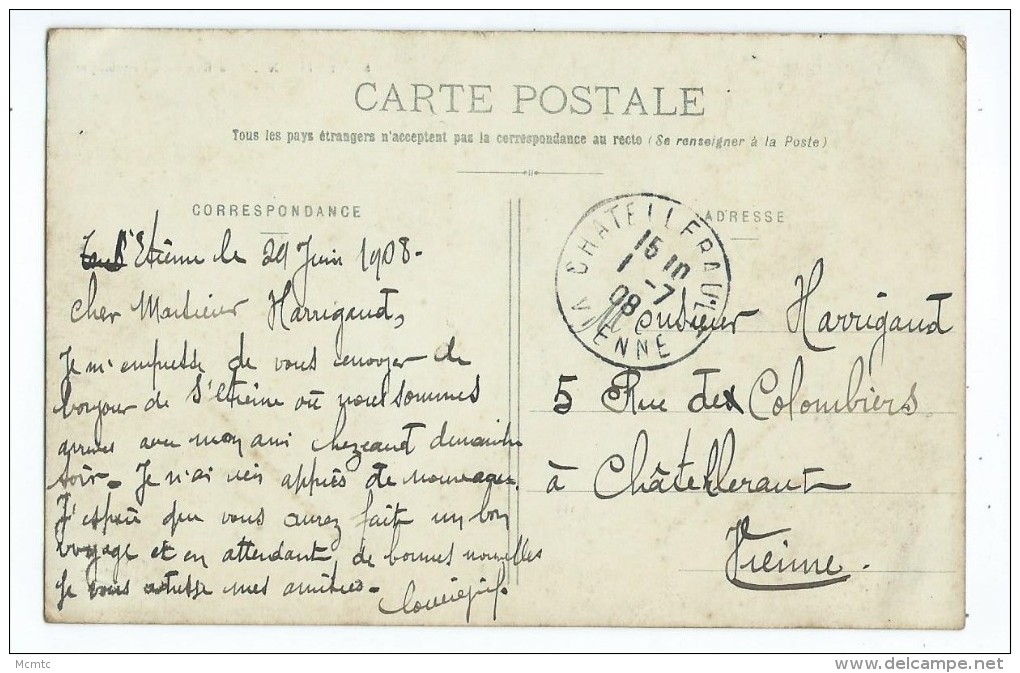 CARTE POSTALE
Tous les pays étrangers n'acceptent pas la correspondance au recto (Se renseigner à la Poste)
CORRESPONDANCE
ADRESSE
CHATELLERAULT
15 10
1 -7
08
VIENNE
S'Etienne le 29 Juin 1908-
Cher Monsieur Harrigaud,
Je m'empresse de vous envoyer le
bonjour de S'Etienne où nous sommes
arrivés avec mon ami Chezeaud dimanche
soir. Je n'ai rien appris de nouveau.
J'espère que vous aurez fait un bon
voyage et en attendant de bonnes nouvelles
Je vous adresse mes amitiés.
Monsieur Harrigaud
5 Rue des Colombiers
à Châtelleraut
Vienne.
Mcmtc
www.delcampe.net